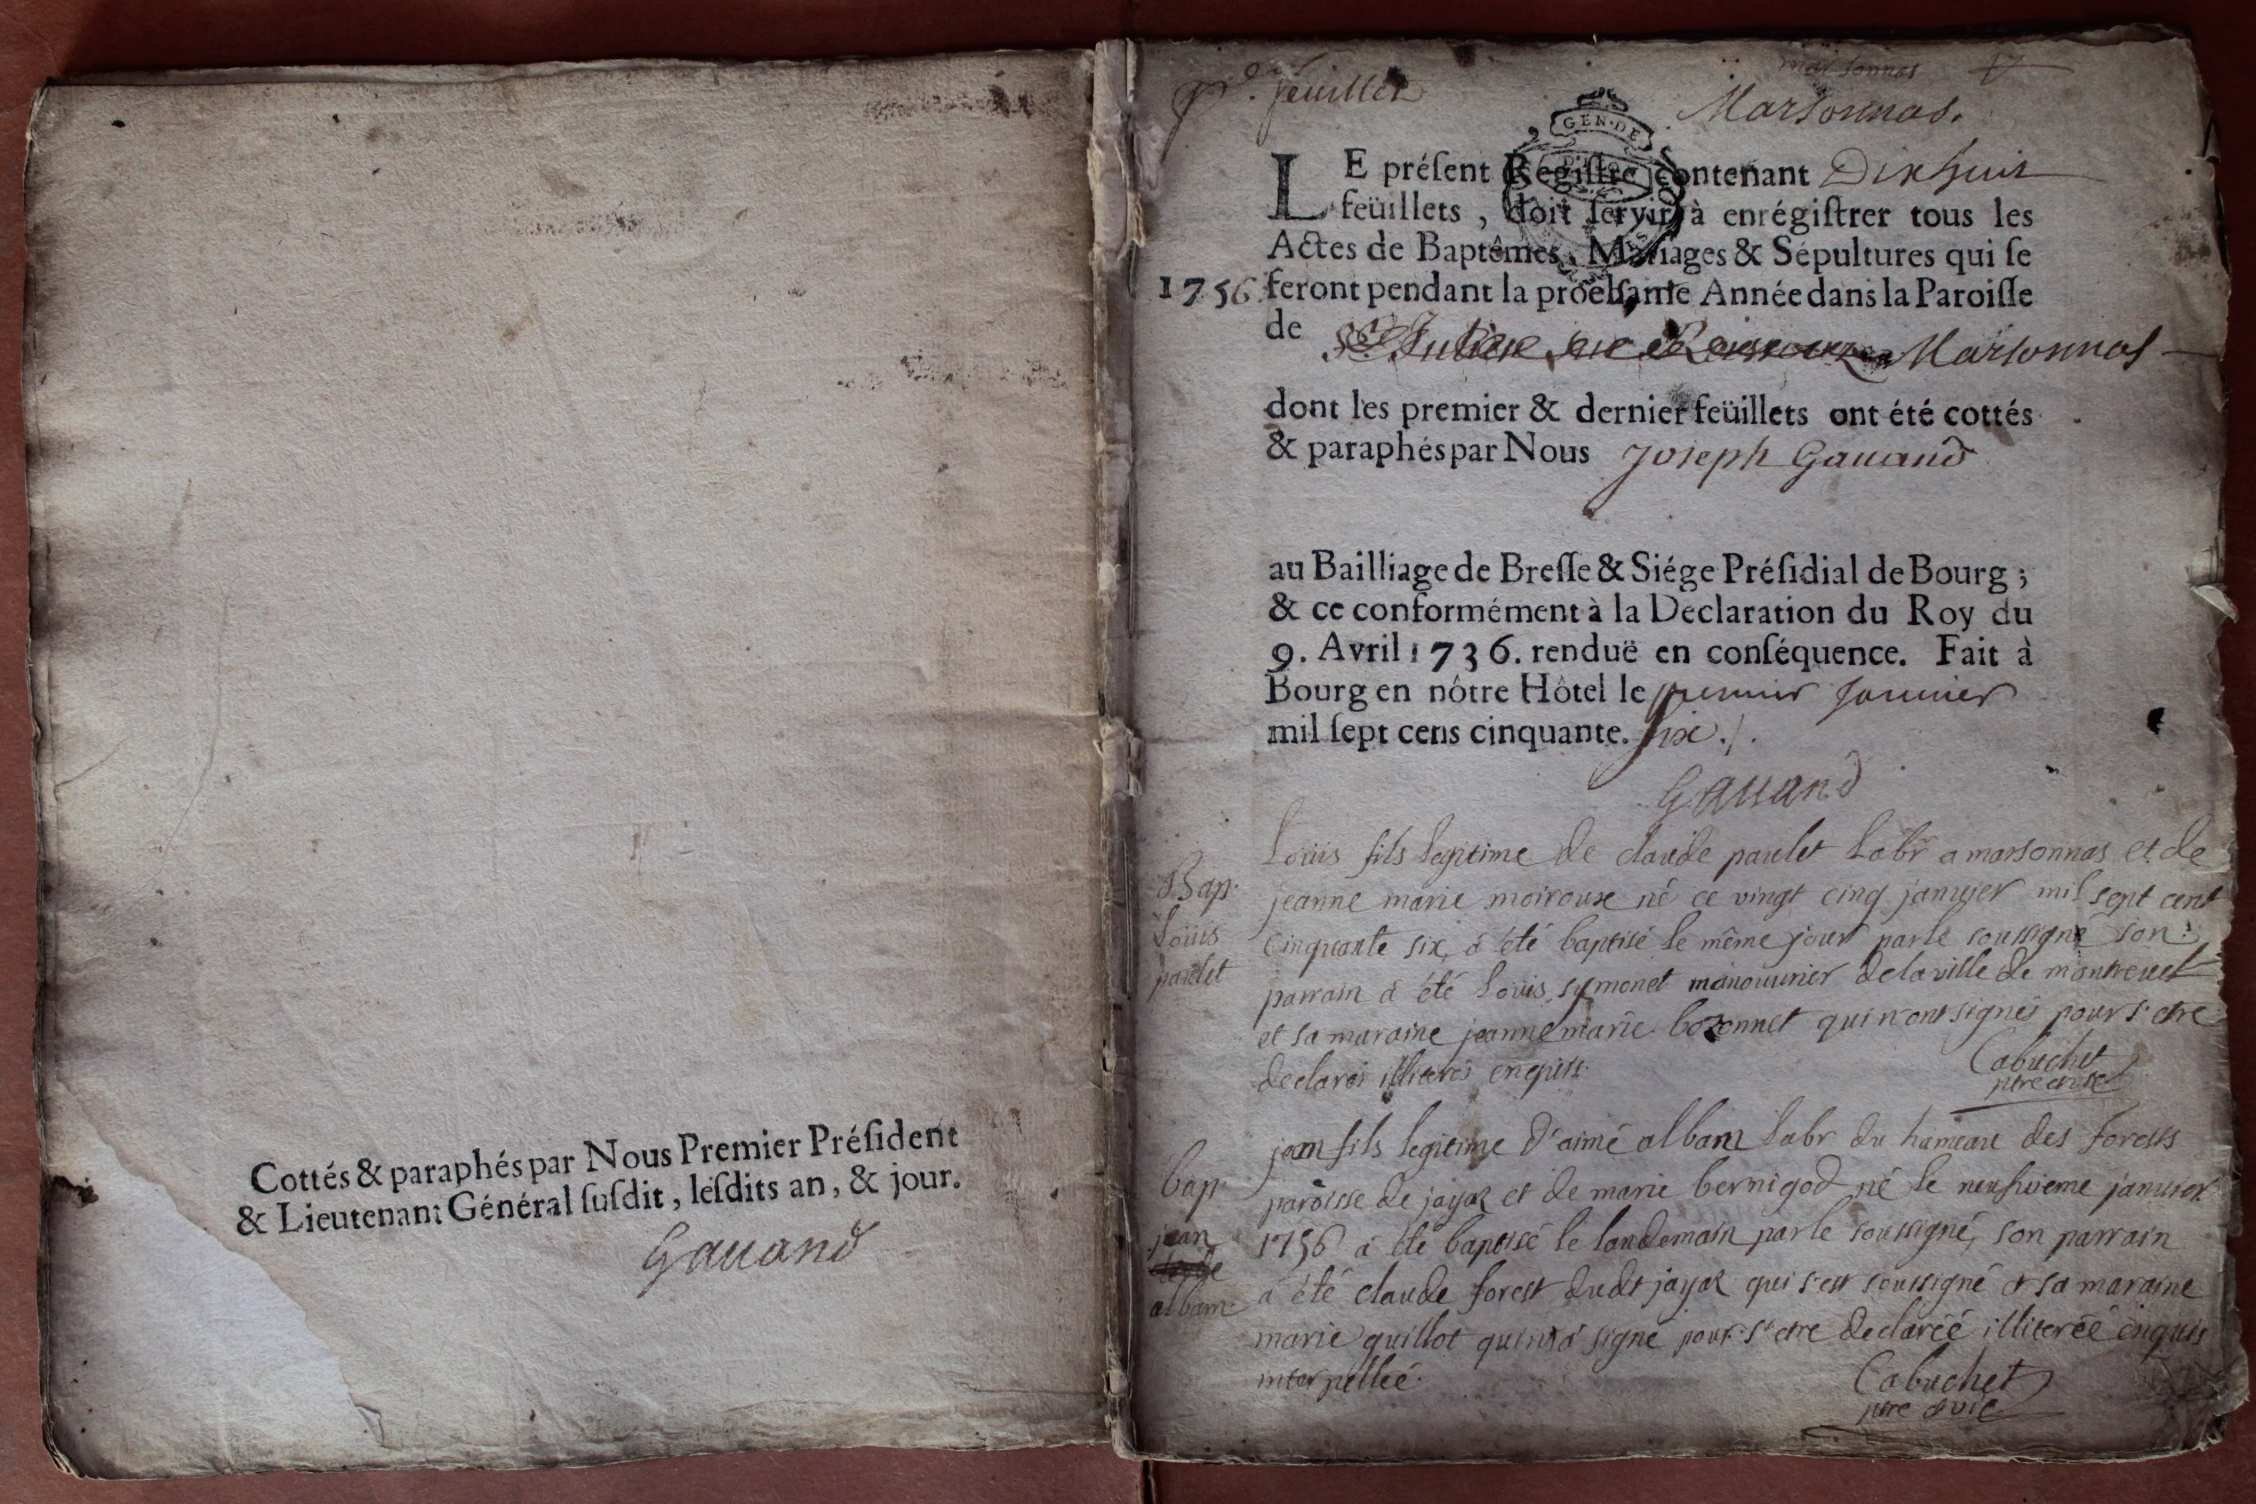 Cottés & paraphés par Nous Premier Préſident
& Lieutenant Général ſuſdit, leſdits an, & jour.
Gauand
feuillet
marsonnas
Marsonnas.
GEN·DE
LE préſent Regiſtre contenant Dixhuit
feüillets, doit ſervir à enrégiſtrer tous les
Actes de Baptêmes, Mariages & Sépultures qui ſe
1756 feront pendant la prochaine Année dans la Paroiſſe
de Marsonnas
dont les premier & dernier feüillets ont été cottés
& paraphés par Nous Joseph Gauand
au Bailliage de Breſſe & Siége Préſidial de Bourg;
& ce conformément à la Declaration du Roy du
9. Avril 1736. renduë en conſéquence. Fait à
Bourg en nôtre Hôtel le premier Januier
mil ſept cens cinquante. six./.
Gauand
Bap.
Loüis
paulet
Loüis fils legitime de claude paulet labr a marsonnas et de
jeanne marie moiroux né ce vingt cinq janvier mil sept cent
cinquante six, à été baptisé le même jour par le soussigné son
parrain à été Loüis symonet manouurier de la ville de montreuel
et sa maraine jeanne marie bozonnet qui n'ont signés pour s'etre
declarés illiterés enquis.
Cabuchet
ptre curé
bap.
jean
albam
jean fils legitime d'aimé albam labr du hameau des forests
paroisse de jayat et de marie bernigod né le neufvieme januier
1756 à été baptisé le landemain par le soussigné, son parrain
a été claude forest dudt jayat qui s'est soussigné & sa maraine
marie guillot qui n'a signé pour s'etre declaréé illiteréé enquis
interpelléé.
Cabuchet
ptre